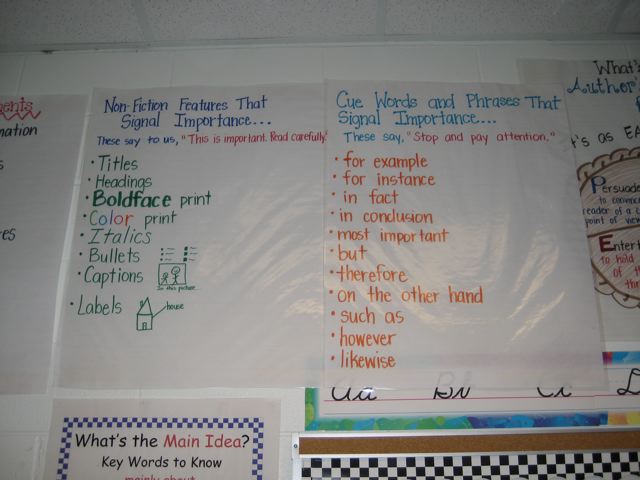 Non-Fiction Features That
Signal Importance...
These say to us, "This is important. Read carefully."
• Titles
• Headings
• Boldface print
• Color print
• Italics
• Bullets
• Captions
In this picture
• Labels
house
Cue Words and Phrases That
Signal Importance...
These say, "Stop and pay attention."
• for example
• for instance
• in fact
• in conclusion
• most important
• but
• therefore
• on the other hand
• such as
• however
• likewise
What's
Author
Persuade
point of view
Aa Bb Cc
What's the Main Idea?
Key Words to Know
mainly about